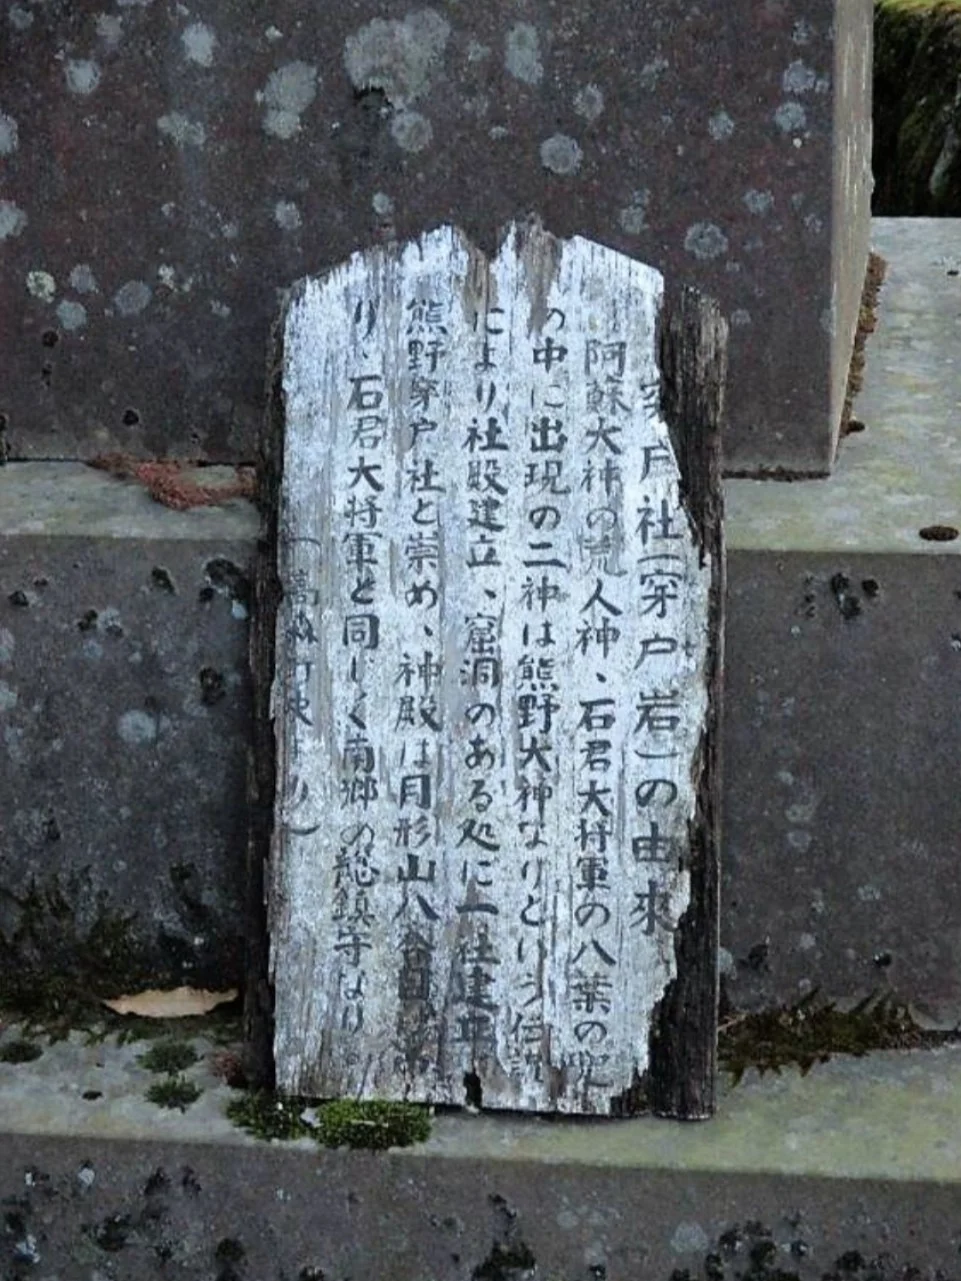 穿戸社(穿戸岩)の由來
阿蘇大神の荒人神、石君大将軍の八葉の
の中に出現の二神は熊野大神なりという伝説
により社殿建立、窟洞のある処に一社建立
熊野穿戸社と崇め、神殿は月形山八
り、石君大将軍と同じく南郷の総鎮守なり
(高森町史より)